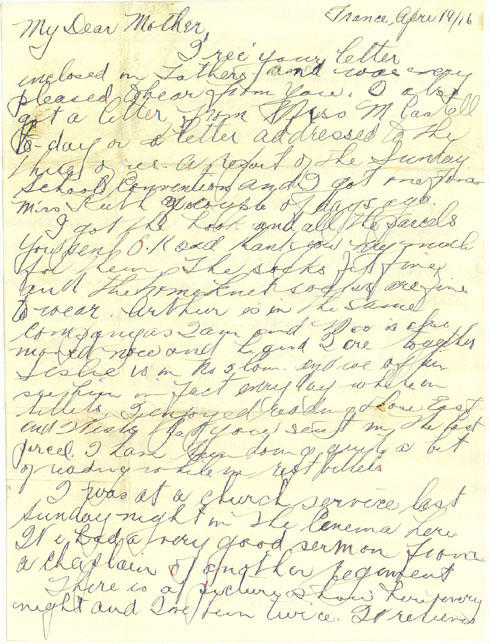 France, Apri 19/16
My Dear Mother,
I rec' your letter
inclosed in Fathers and was very
pleased to hear from you. I also
got a letter from Miss M
to-day or a letter addressed to the
three of us. A report of the Sunday
School Convention and I got one from
Mrs Ruth a couple of days ago.
I got the book and all the parcels
you sent O.K and thank you very much
for them The socks fit fine
and the homeknit socks are fine
to wear. Arthur is in the same
Company as I am and is also
and he and I are together
Leslie is in No and we often
see him in fact every day when in
billets. I enjoyed reading those East
and West that you sent in the last
parcel. I have been doing quite a bit
of reading while in rest billets
I was at a church service last
Sunday night in the Cinema here
We had a very good sermon from
a chaplain of another regiment
There is a picture show here every
night and I've been twice. It